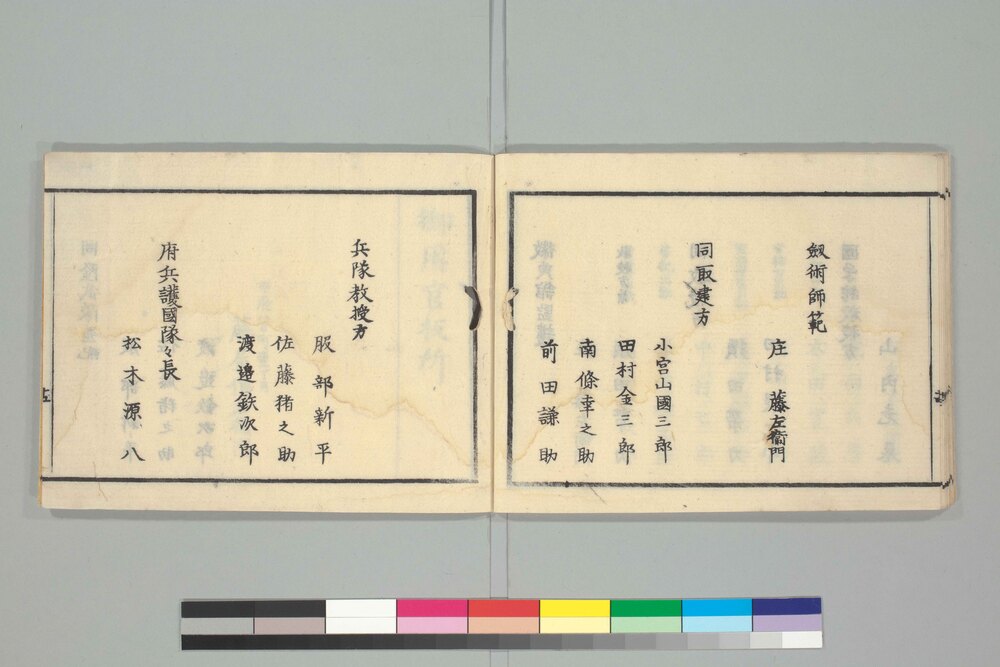 劔術師範
庄 藤左衞門
同取建方
小宮山國三郎
田村金三郎
南條幸之助
前田謙助
兵隊教授方
服部新平
佐藤猪之助
渡邉鉄次郎
府兵護國隊々長
松木源八